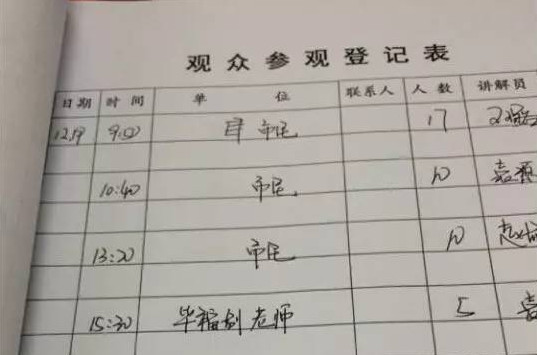 观众参观登记表
日期 时间 单位 联系人 人数 讲解员
12.19 9:50 市民 17
10:40 市民 10
13:20 市民 10
15:30 毕福剑老师 5